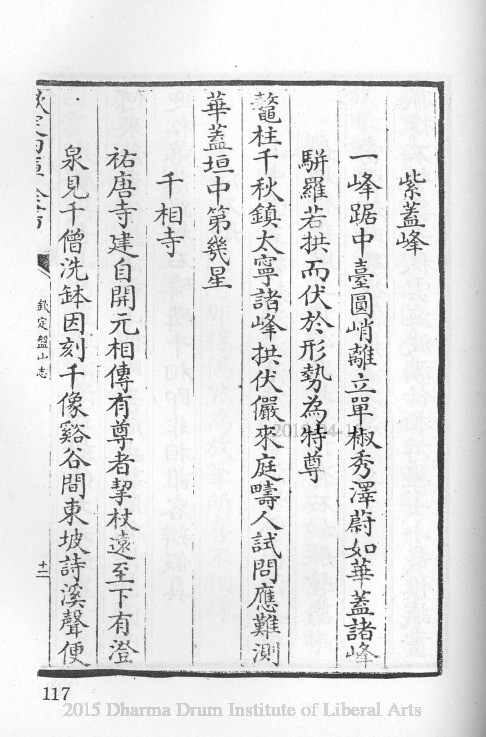 紫蓋峰
一峰踞中臺圓峭離立單椒秀澤蔚如華蓋諸峰
駢羅若拱而伏於形勢為特尊
鼇柱千秋鎮太寧諸峰拱伏儼來庭疇人試問應難測
華蓋垣中第幾星
千相寺
祐唐寺建自開元相傳有尊者挈杖遠至下有澄
泉見千僧洗鉢因刻千像谿谷間東坡詩溪聲便
欽定四庫全書
欽定盤山志
十二
117
2015 Dharma Drum Institute of Liberal Arts